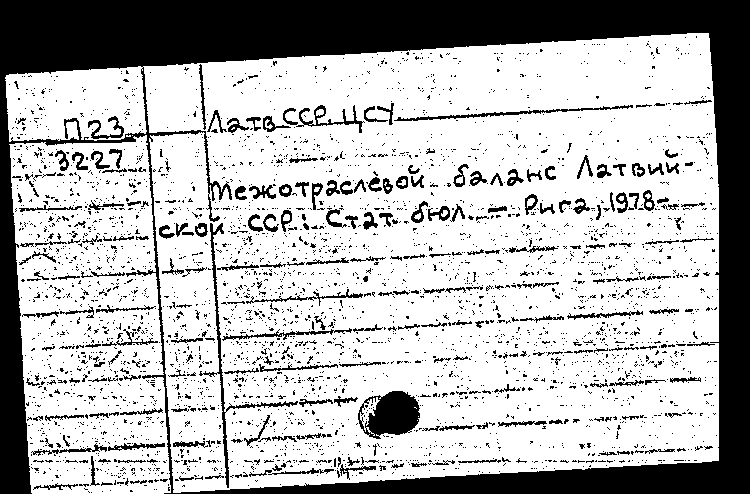 П23
3227
Латв ССР. ЦСУ.
Межотраслевой баланс Латвий-
ской ССР: Стат. бюл. — Рига, 1978-